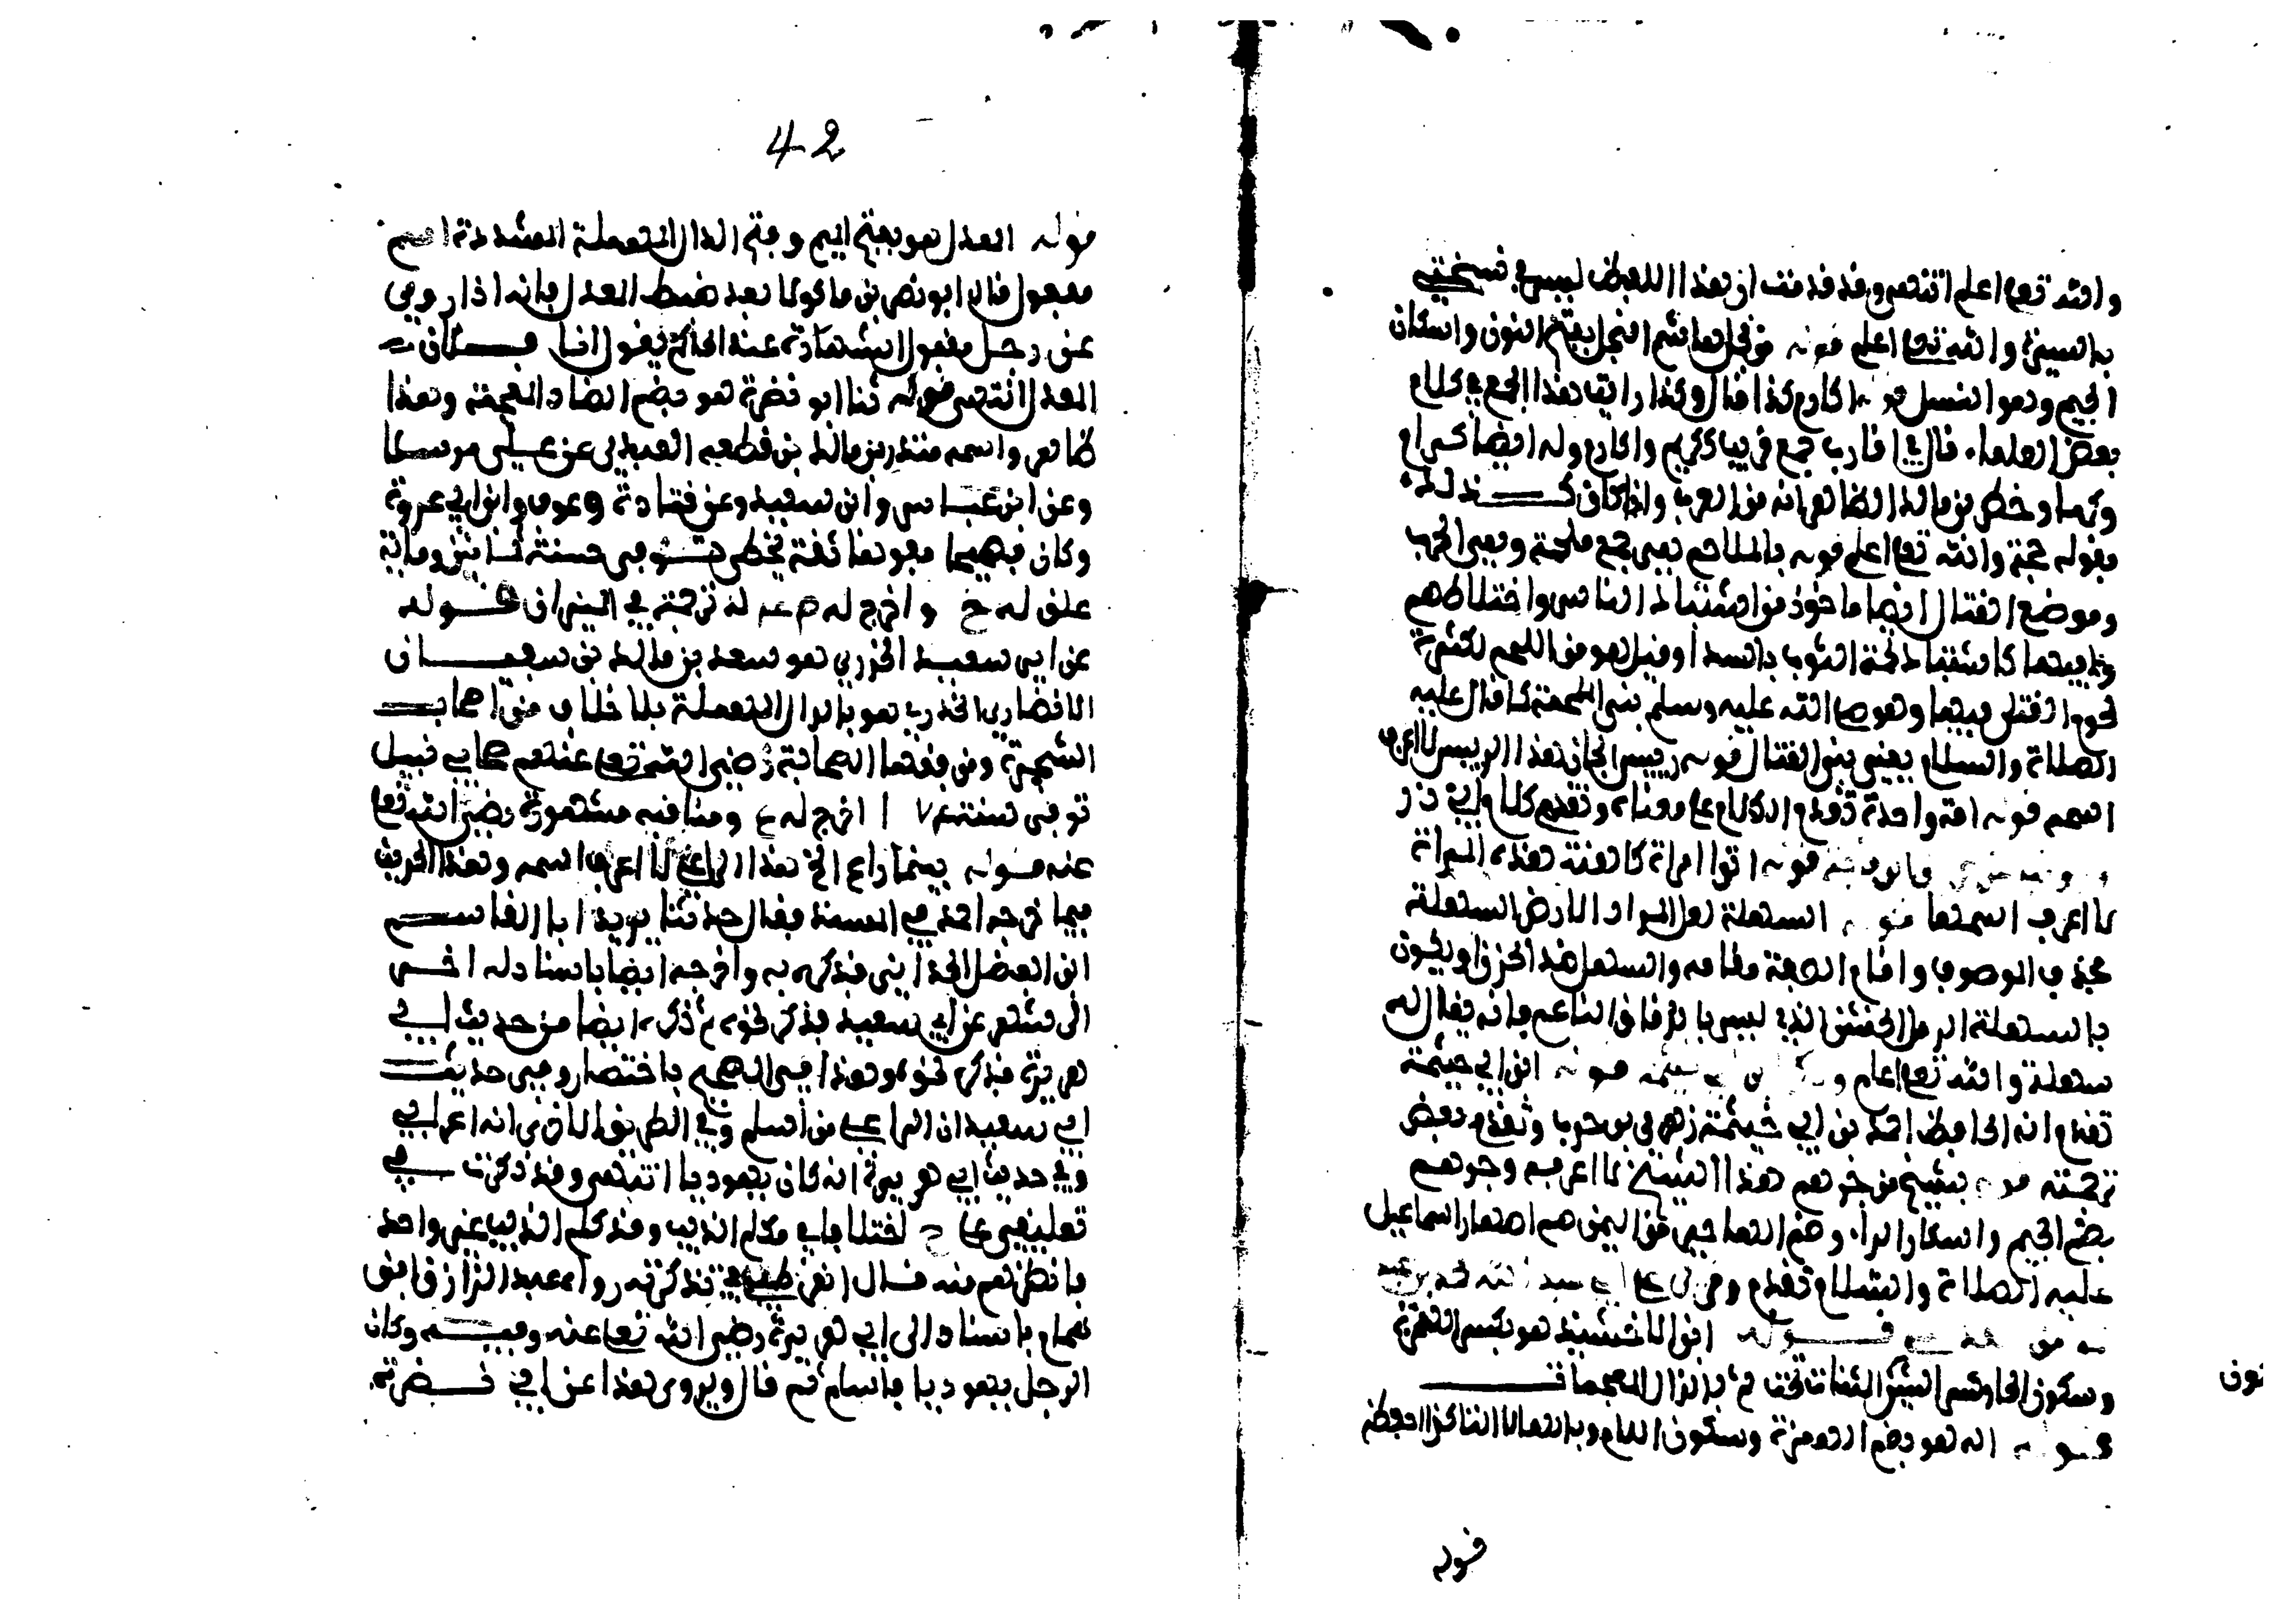 والله تعا اعلم انتهى وقد قدمت ان هذا اللفظ ليس في نسختي
بالسيرة والله تعا اعلم قوله من نجل هاشم النجل بفتح النون واسكان
الجيم وهو النسل قوله اكارم كذا قال وكذا رايت هذا الجمع في كلام
بعض العلماء قال في اقارب جمع قريب ككريم واكارم وله ايضا
وخط بن مالك الظاهر انه من العرب واذا كان كذلك
فقوله حجة والله تعا اعلم قوله بالملاحم هي جمع ملحمة وهي الحرب
وموضع القتال ايضا ماخوذ من اشتباك الناس واختلاطهم
فيها كاشتباك لحمة الثوب بالسدا وقيل هو من اللحم لكثرة
لحوم القتلى فيها وهو صلى الله عليه وسلم نبي الملحمة كما قال عليه
الصلاة والسلام يعني نبي القتال قوله رييس الجان هذا الرييس لا اعرف
اسمه قوله امة واحدة تقدم الكلام على معناه وتقدم كلام ابي ذر
قوله اتوا امراة كاهنة هذه المراة
لا اعرف اسمها قوله السهلة لعل المراد الارض السهلة
بحذف الموصوف واقام الصفة مقامه والسهل ضد الحزن او يكون
بالسهلة الرمل الخشن الذي ليس بالدقاق الناعم فانه يقال له
سهلة والله تعا اعلم قوله ابن ابي خيثمة
تقدم انه الحافظ احمد بن ابي خيثمة زهير بن حرب وتقدم بعض
ترجمته قوله بشيخ من جرهم هذا الشيخ لا اعرفه وجرهم
بضم الجيم واسكان الراء وضم الهاء حي من اليمن هم اصهار اسماعيل
عليه الصلاة والسلام تقدم
قوله ابن الاخشيد هو بكسر الهمزة
وسكون الخاء وشين مثناة تحت ثم بالذال المعجمات
قوله اله هو بضم الهمزة وسكون اللام وبالهاء
نون
قوله
42
قوله المعدل هو بفتح الميم وفتح الدال المهملة المشددة اسم
مفعول قال ابو نصر بن ماكولا بعد ضبط المعدل فانه اذا روي
عن رجل مقبول الشهادة عند الحاكم يقول انا فلان
المعدل انتهى قوله ثنا ابو نضرة هو بضم الضاد المعجمة وهذا
ظاهر واسمه منذر بن مالك بن قطعه العبدي عن علي مرسلا
وعن ابن عباس وابي سعيد وعن قتادة وعوف وابن ابي عروبة
وكان فصيحا مفوها ثقة يخطي توفي سنة ثمان وماية
علق له خ واخرج له م عه له ترجمة في الميزان قوله
عن ابي سعيد الخدري هو سعد بن مالك بن سنان
الانصاري الخدري هو بالدال المهملة بلا خلاف من اصحاب
الشجرة ومن فقها الصحابة رضي الله تعا عنهم صحابي نبيل
توفي سنة ٧٤ اخرج له ع ومناقبه مشهورة رضي الله تعا
عنه قوله بينما راع الخ هذا الراعي لا اعرف اسمه وهذا الحديث
مما خرجه احمد في المسند فقال حدثنا يزيد انا القاسم
ابن الفضل الحداني فذكره به واخرجه ايضا باسناد له اخر
الى شهر عن ابي سعيد فذكر نحوه ثم ذكره ايضا من حديث ابي
هريرة فذكر نحوه وهذا في الصحيح باختصار وفي حديث
ابي سعيد ان الراعي من اسلم وفي الطريق الاخرى انه اعرابي
وفي حديث ابي هريرة انه كان يهوديا انتهى وقد ذكرت في
تعليقي على خ اختلافا في مكلم الذيب وقد كلم الذيب غير واحد
فانظرهم منه قال القرطبي في تذكرته روا عبد الرزاق ابن
همام باسناد الى ابي هريرة رضي الله تعا عنه وفيه وكان
الرجل يهوديا فاسلم ثم قال ويروى هذا عن ابي نضرة